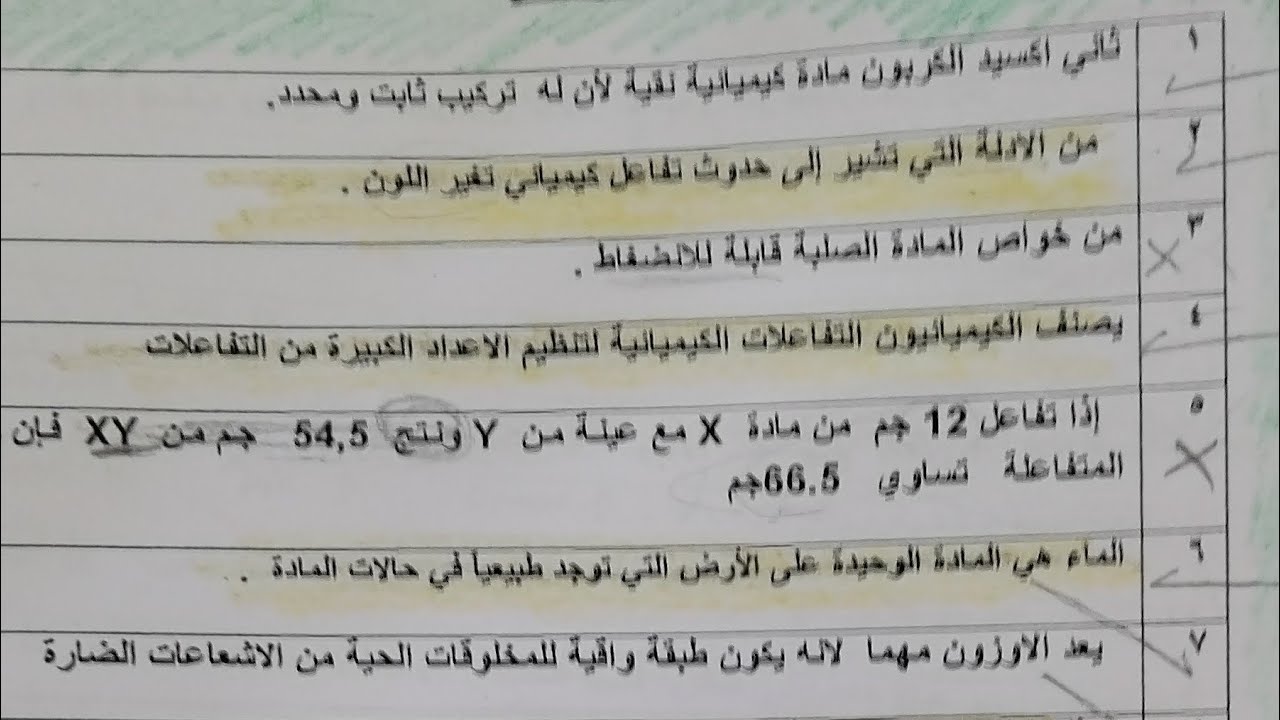 ١ ثاني اكسيد الكربون مادة كيميائية نقية لأن له تركيب ثابت ومحدد.
٢ من الادلة التي تشير إلى حدوث تفاعل كيميائي تغير اللون .
٣ من خواص المادة الصلبة قابلة للانضغاط .
٤ يصنف الكيميائيون التفاعلات الكيميائية لتنظيم الاعداد الكبيرة من التفاعلات
٥ إذا تفاعل 12 جم من مادة X مع عينة من Y ونتج 54,5 جم من XY فإن
المتفاعلة تساوي 66.5جم
٦ الماء هي المادة الوحيدة على الأرض التي توجد طبيعياً في حالات المادة .
٧ يعد الاوزون مهما لانه يكون طبقة واقية للمخلوقات الحية من الاشعاعات الضارة